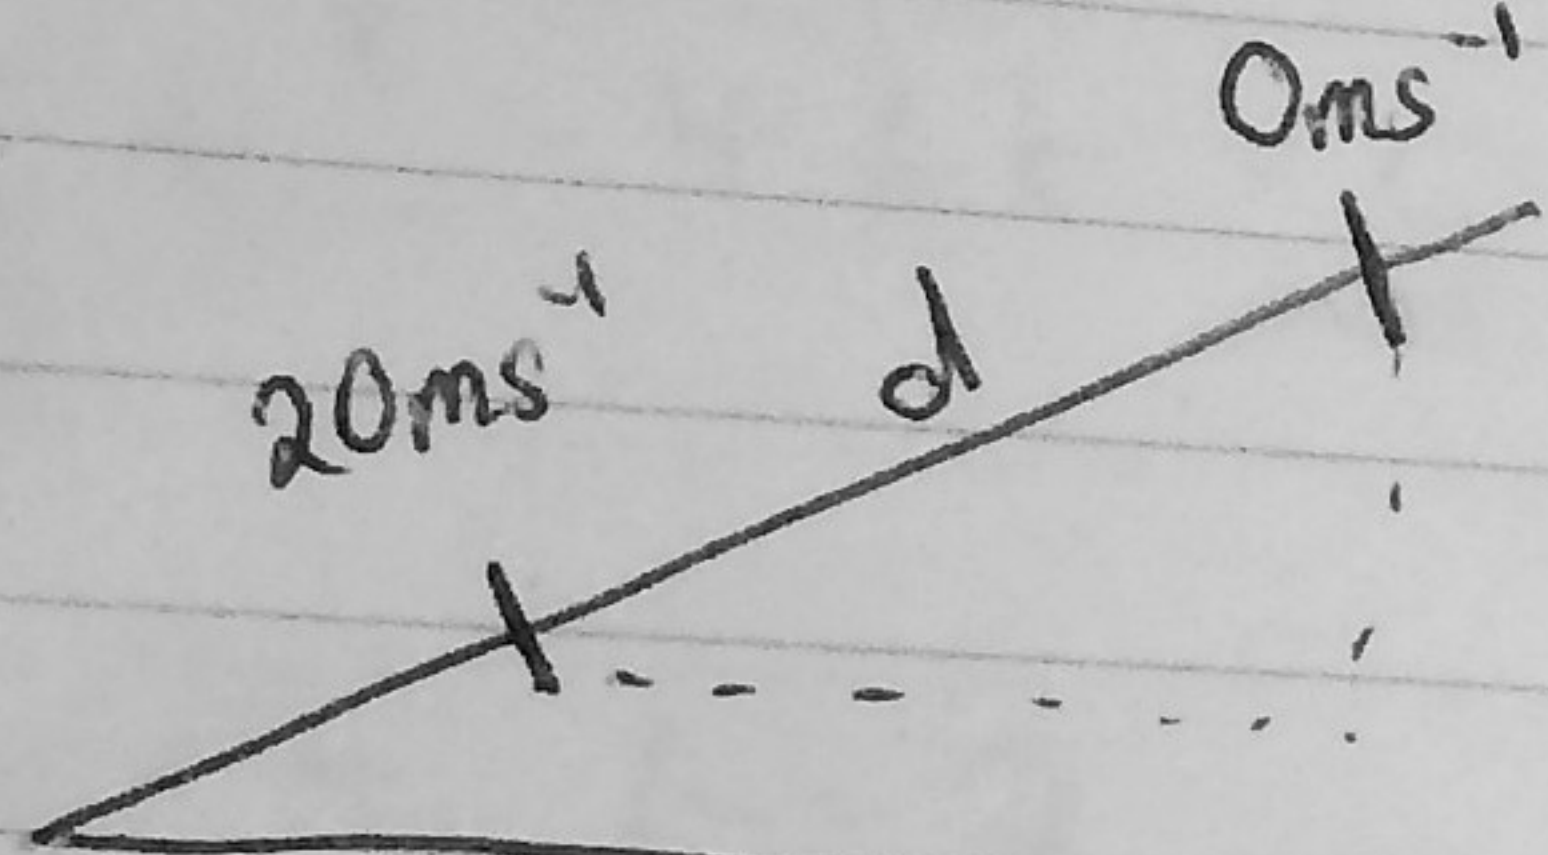 0ms⁻¹
20ms⁻¹
d